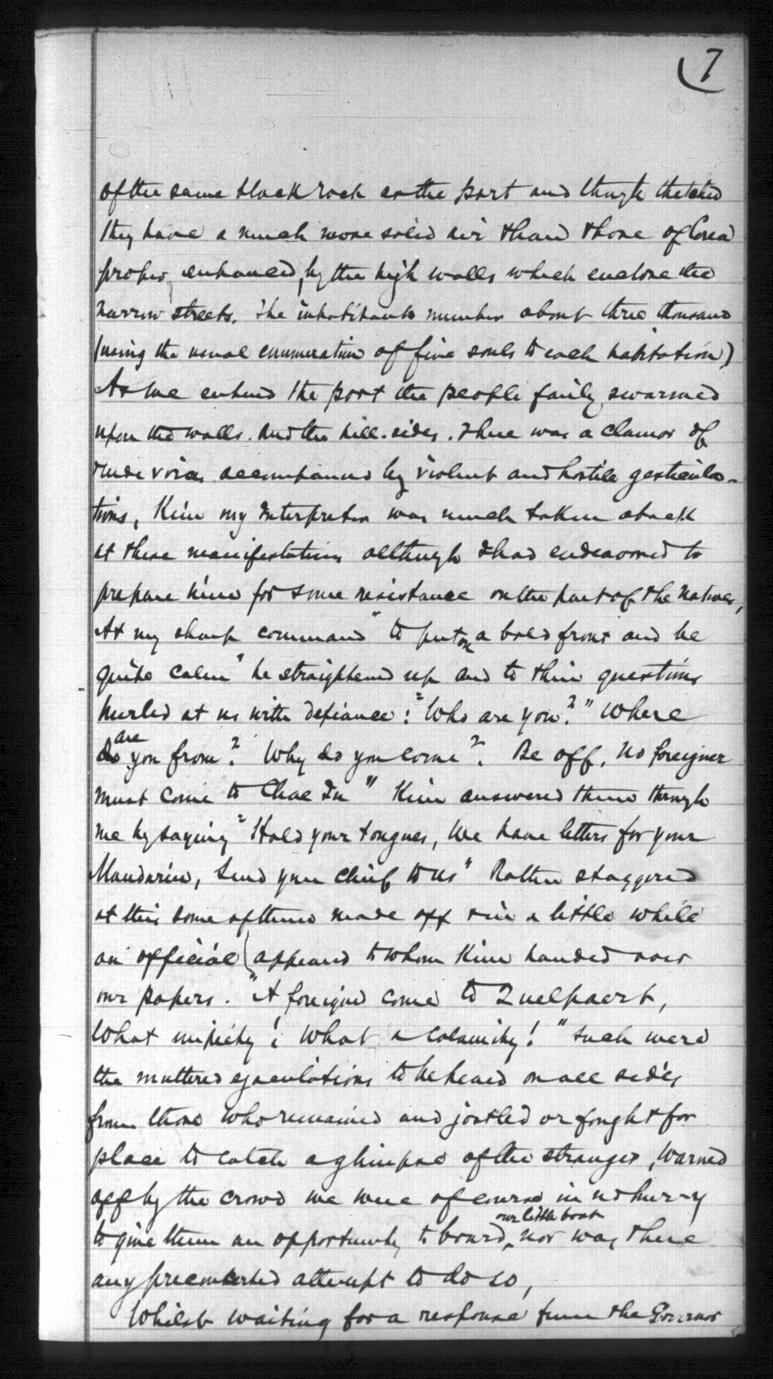 7
of the same black rock as the port and though thatched
they have a much more solid air than those of Corea
proper, enhanced, by the high walls which enclose the
narrow streets. The inhabitants number about three thousand
(using the usual enumeration of five souls to each habitation)
As we entered the port the people fairly swarmed
upon the walls. And the hill-sides. There was a clamor of
rude voices accompanied by violent and hostile gesticula-
tions, Kim my Interpreter was much taken aback
at these manifestations although I had endeavored to
prepare him for some resistance on the part of the natives,
At my sharp command "to put on a bold front and be
quite calm" he straightened up and to their questions
hurled at us with defiance: "Who are you?" Where
do are you from? Why do you come? Be off, no foreigner
must come to Chae Ju" Kim answered them through
me by saying "Hold your tongues, We have letters for your
Mandarin, Send your chief to us" Rather staggered
at this some of them made off & in a little while
an official (appeared to whom Kim handed over
our papers. "A foreigner come to Quelpaert,
What impiety! What a calamity!" Such were
the muttered ejaculations to be heard on all sides
from those who remained and jostled or fought for
place to catch a glimpse of the stranger, Warned
off by the crowd we were of course in no hurry
to give them an opportunity to board our little boat, nor was there
any preconcerted attempt to do so,
Whilst waiting for a response from the Governor